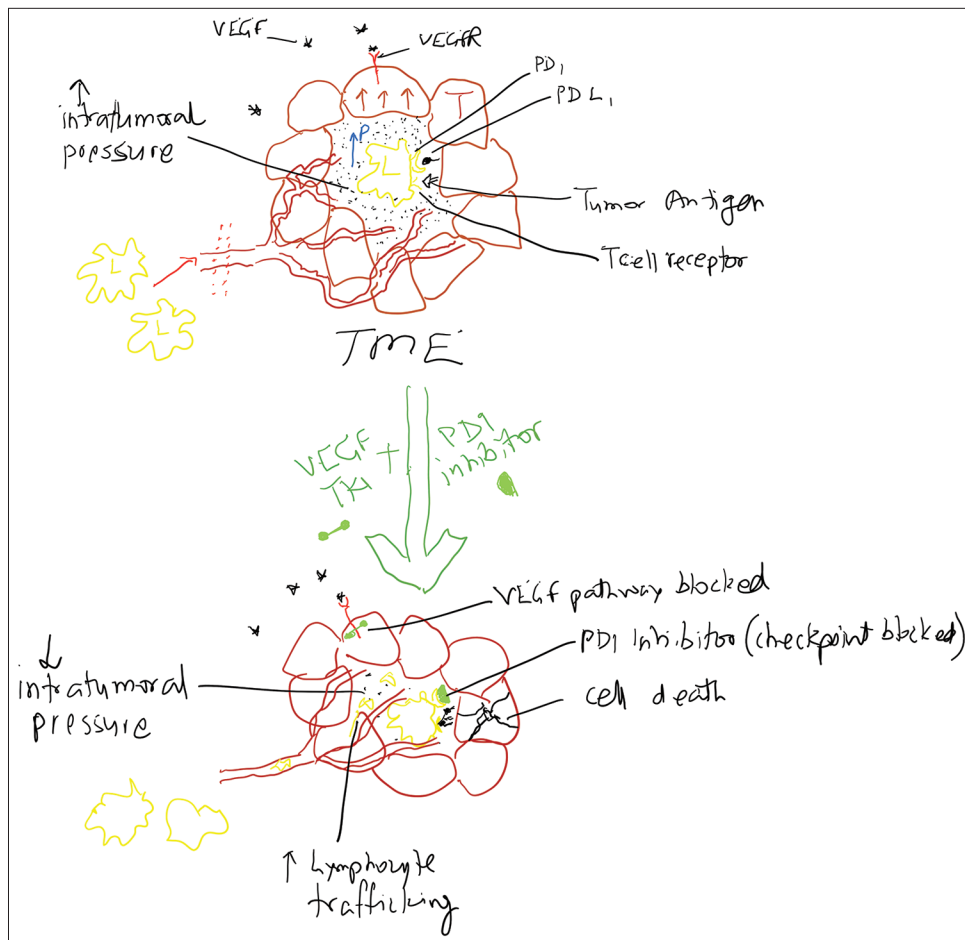 VEGF
VEGFR
PD1
PDL1
↑
intratumoral
pressure
T
P
L
Tumor Antigen
T cell receptor
L
L
TME
VEGF +
TKI
PD1
inhibitor
VEGF pathway blocked
PD1 Inhibitor (checkpoint blocked)
cell death
↓
intratumoral
pressure
↑ Lymphocyte
trafficking